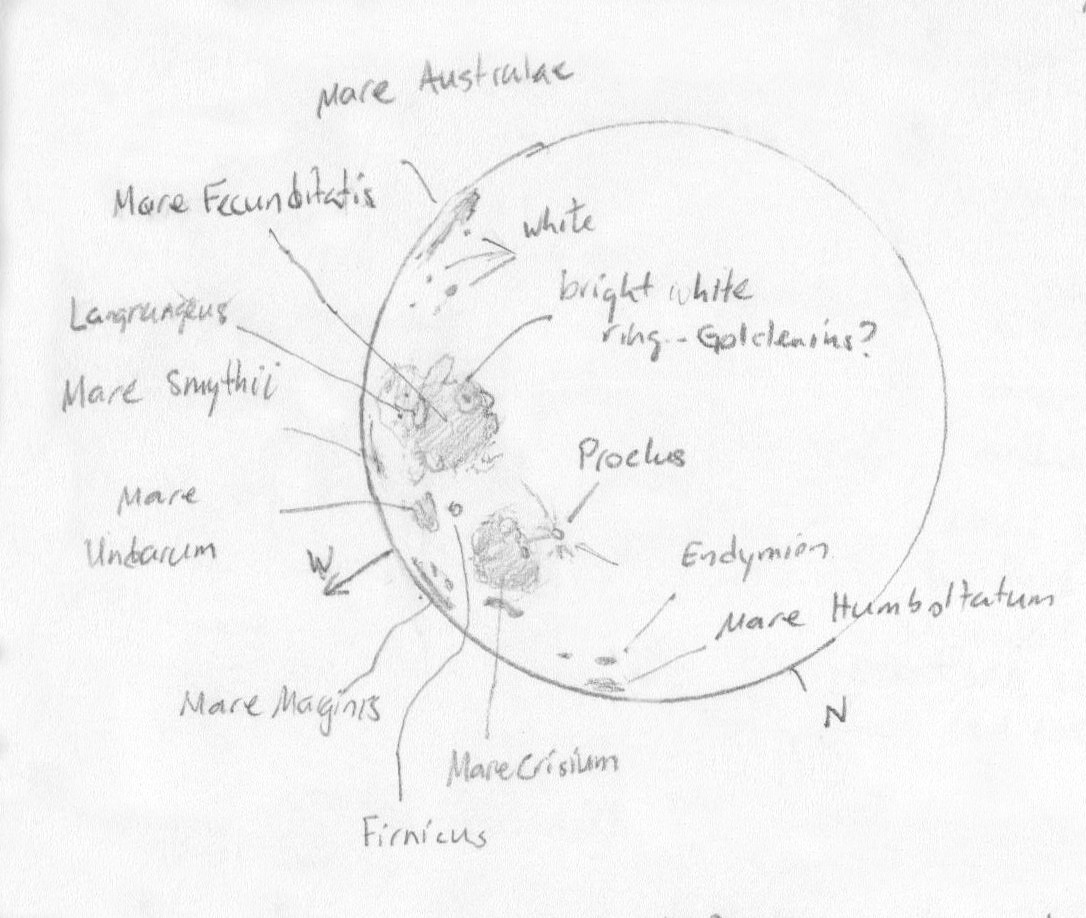 Mare Australae
Mare Fecunditatis
white
bright white
ring - Goldenius?
Langrangeus
Mare Smythii
Proclus
Mare
Undarum
Endymion
W
Mare Humboltatum
Mare Maginis
N
Mare Crisium
Firnicus